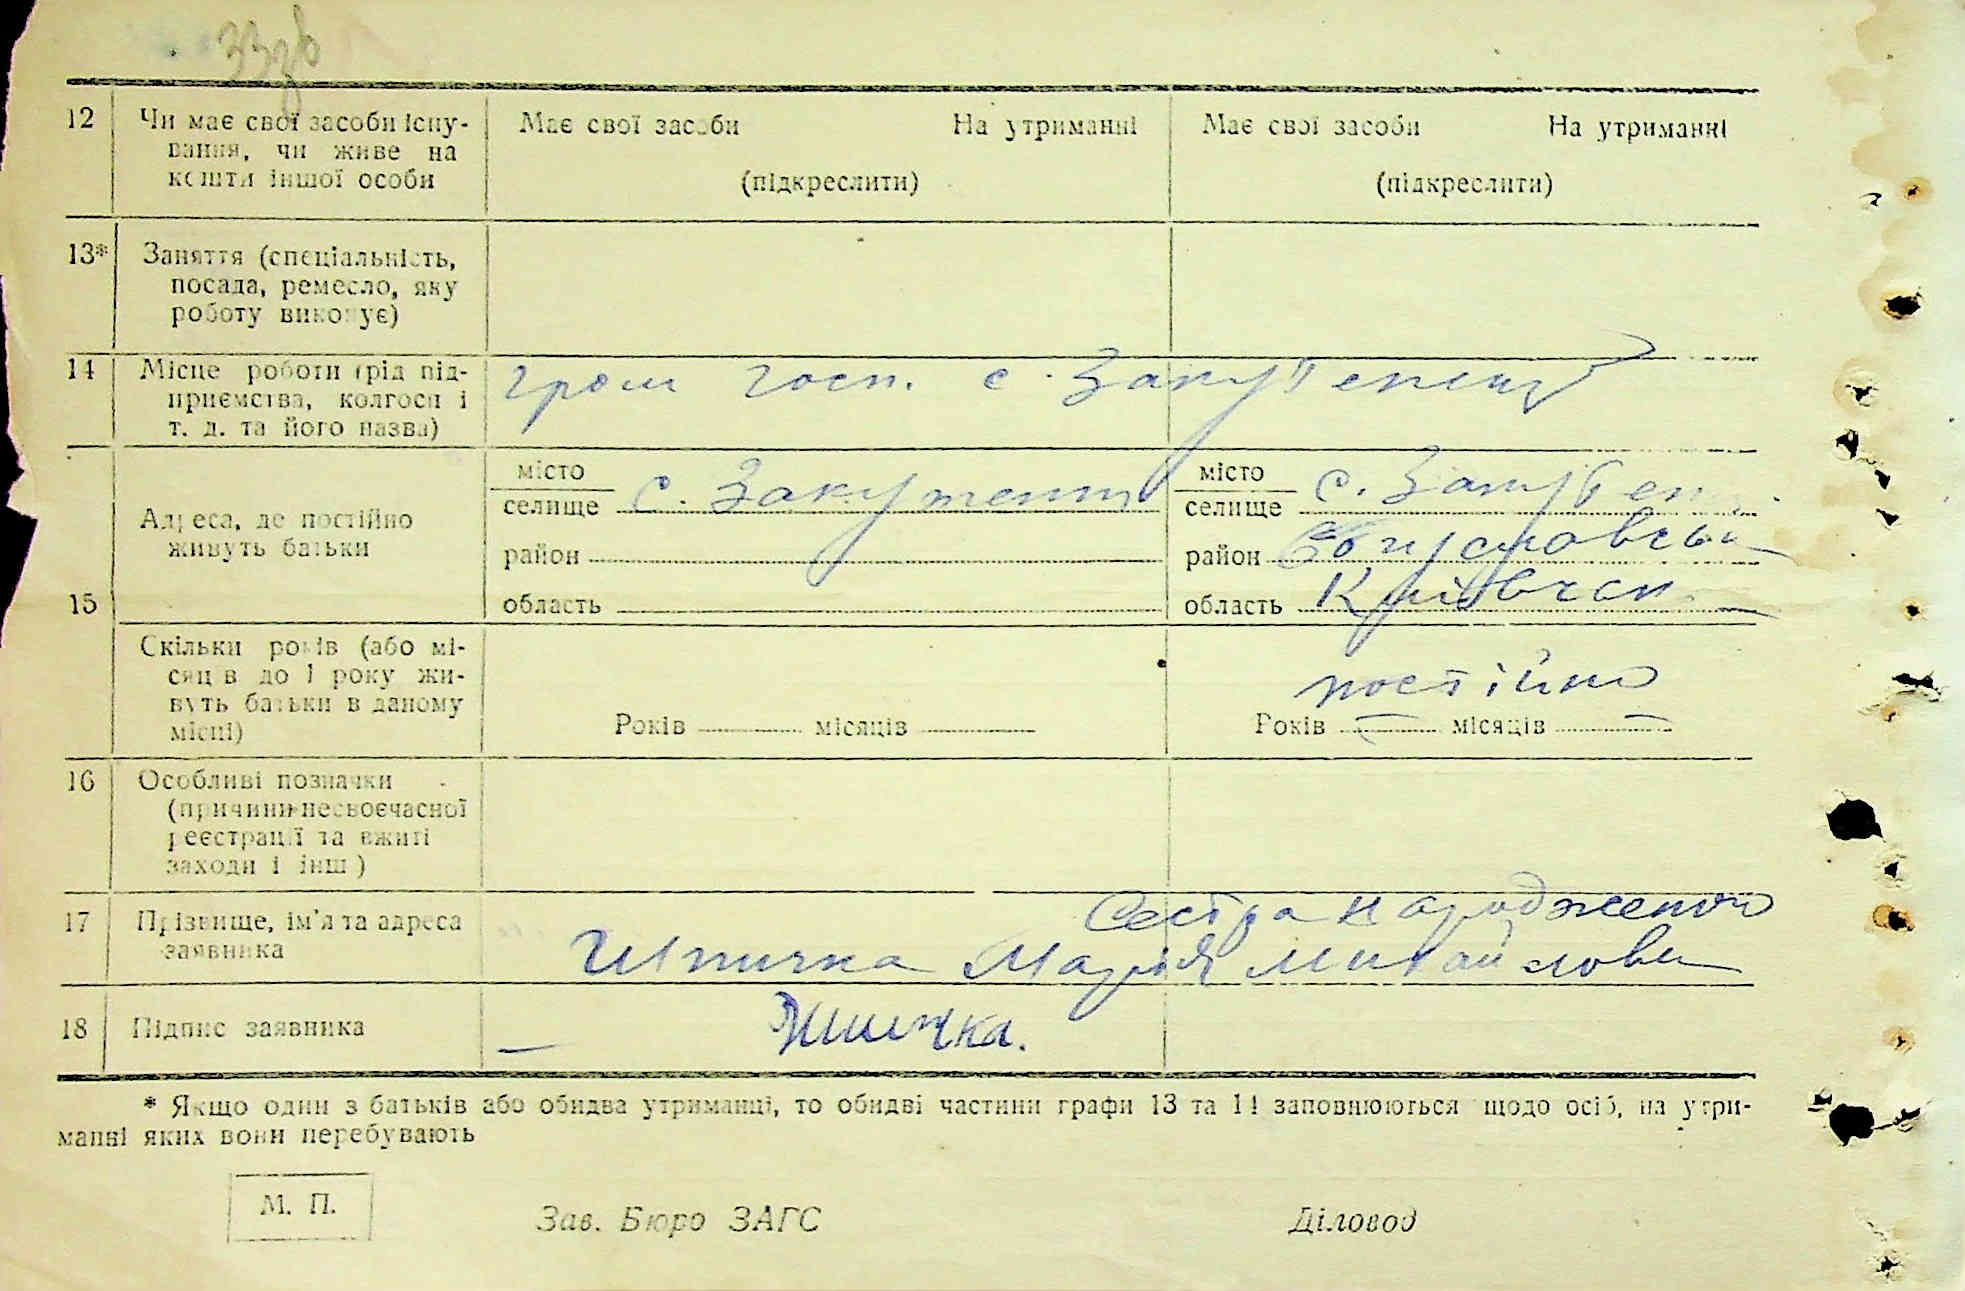 33зв
12 Чи має свої засоби існу- Має свої засоби На утриманні Має свої засоби На утриманні
вання, чи живе на
кошти іншої особи (підкреслити) (підкреслити)
13* Заняття (спеціальність,
посада, ремесло, яку
роботу виконує)
14 Місце роботи (рід під-
приємства, колгосп і гром госп. с. Закутенцу
т. д. та його назва)
15 Адреса, де постійно
живуть батьки
місто
селище с. Закутенц
район
область
місто
селище с. Закутен
район Богуславськ
область Київськ
Скільки років (або мі-
сяців до 1 року жи-
вуть батьки в даному
місці)
Років місяців
постійно
Років – місяців –
16 Особливі позначки
(причини несвоєчасної
реєстрації та вжиті
заходи і інш)
17 Прізвище, ім'я та адреса
заявника
Сестра народженого
Шпичка Марія Михайловн
18 Підпис заявника – Шпичка.
* Якщо один з батьків або обидва утриманці, то обидві частини графи 13 та 14 заповнюються щодо осіб, на утри-
манні яких вони перебувають
М. П. Зав. Бюро ЗАГС Діловод